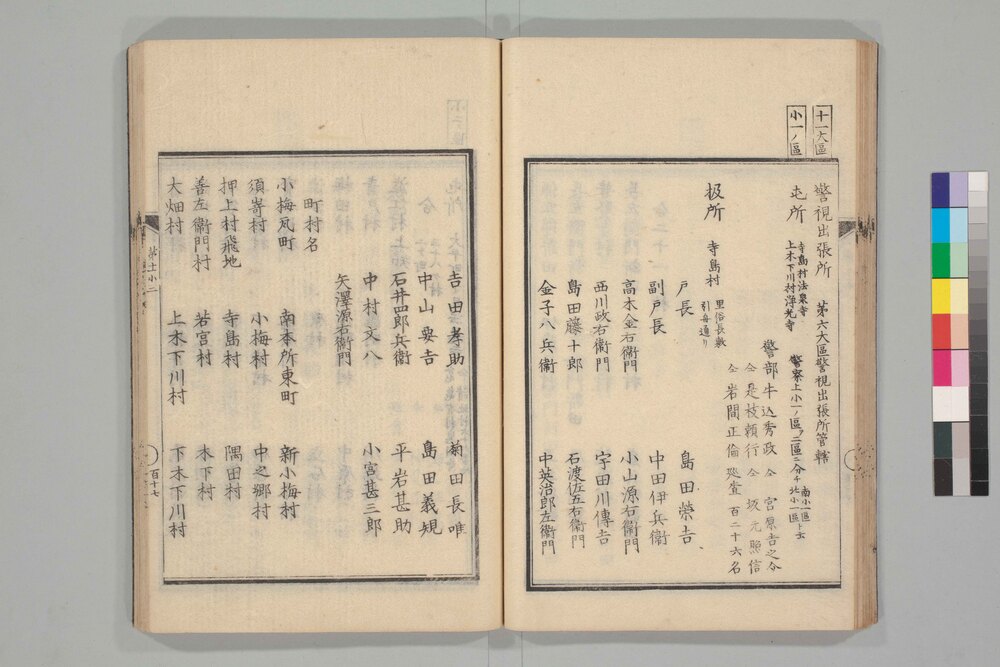 十一大區
小一ノ區
警視出張所　第六大區警視出張所管轄
屯所　寺島村法泉寺
上木下川村淨光寺
警察上小一ノ區ヲ二區ニ分チ北小一區
南小一區ト云
警部牛込秀政　仝　宮原吉之介
仝是枝頼行　仝　坂元照信
仝岩間正倫　巡査百二十六名
扱所　寺島村　里俗長敷
引舟通リ
戸長　島田榮吉
副戸長　中田伊兵衞
高木金右衞門　小山源右衞門
西川政右衞門　宇田川傳吉
島田藤十郎　石渡佐五右衞門
金子八兵衞　中英治郎左衞門
吉田孝助　菊田長唯
中山要吉　島田義規
石井四郎兵衞　平岩甚助
中村文八　小宮甚三郎
矢澤源右衞門
町村名
小梅瓦町　南本所東町　新小梅村
須嵜村　小梅村　中之郷村
押上村飛地　寺島村　隅田村
善左衞門村　若宮村　木下村
大畑村　上木下川村　下木下川村
第士小二
百十七